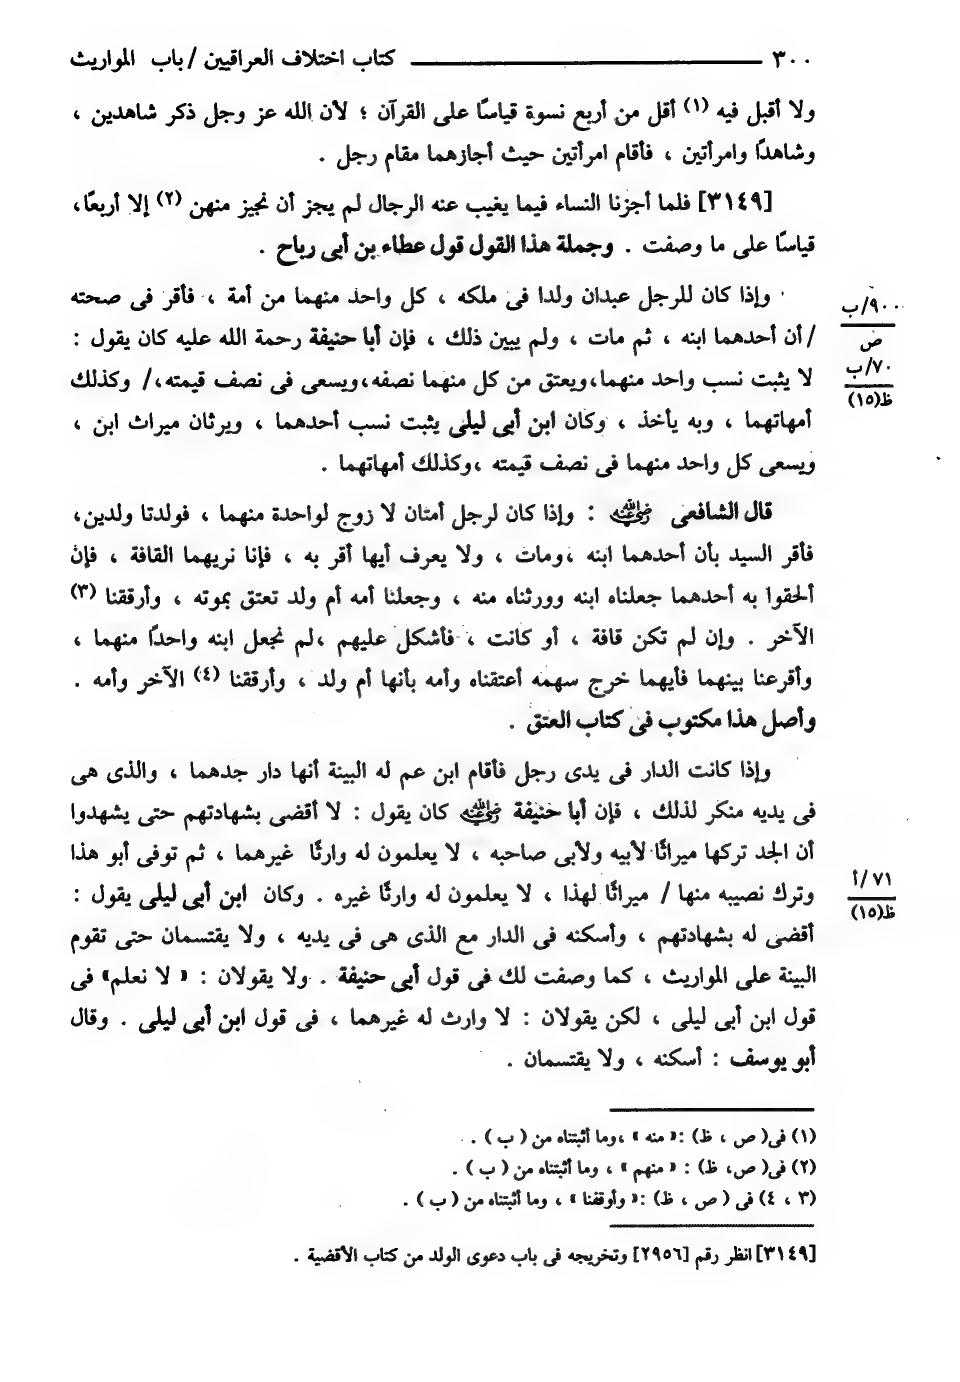 ٣٠٠ كتاب اختلاف العراقيين / باب المواريث
ولا أقبل فيه (١) أقل من أربع نسوة قياسًا على القرآن ؛ لأن الله عز وجل ذكر شاهدين ،
وشاهدًا وامرأتين ، فأقام امرأتين حيث أجازهما مقام رجل .
[٣١٤٩] فلما أجزنا النساء فيما يغيب عنه الرجال لم يجز أن نجيز منهن (٢) إلا أربعًا،
قياسًا على ما وصفت . وجملة هذا القول قول عطاء بن أبى رباح .
وإذا كان للرجل عبدان ولدا فى ملكه ، كل واحد منهما من أمة ، فأقر فى صحته
/ أن أحدهما ابنه ، ثم مات ، ولم يبين ذلك ، فإن أبا حنيفة رحمة الله عليه كان يقول :
لا يثبت نسب واحد منهما،ويعتق من كل منهما نصفه،ويسعى فى نصف قيمته،/ وكذلك
أمهاتهما ، وبه يأخذ ، وكان ابن أبى ليلى يثبت نسب أحدهما ، ويرثان ميراث ابن ،
ويسعى كل واحد منهما فى نصف قيمته ،وكذلك أمهاتهما .
٩٠٠/ب
ص
٧٠/ب
ظ(١٥)
قال الشافعى رضي الله عنه : وإذا كان لرجل أمتان لا زوج لواحدة منهما ، فولدتا ولدين،
فأقر السيد بأن أحدهما ابنه ،ومات ، ولا يعرف أيها أقر به ، فإنا نريهما القافة ، فإن
ألحقوا به أحدهما جعلناه ابنه وورثناه منه ، وجعلنا أمه أم ولد تعتق بموته ، وأرققنا (٣)
الآخر . وإن لم تكن قافة ، أو كانت ، فأشكل عليهم ،لم نجعل ابنه واحدًا منهما ،
وأقرعنا بينهما فأيهما خرج سهمه أعتقناه وأمه بأنها أم ولد ، وأرققنا (٤) الآخر وأمه .
وأصل هذا مكتوب فى كتاب العتق .
وإذا كانت الدار فى يدى رجل فأقام ابن عم له البينة أنها دار جدهما ، والذى هى
فى يديه منكر لذلك ، فإن أبا حنيفة رضي الله عنه كان يقول : لا أقضى بشهادتهم حتى يشهدوا
أن الجد تركها ميراثًا لأبيه ولأبى صاحبه ، لا يعلمون له وارثًا غيرهما ، ثم توفى أبو هذا
وترك نصيبه منها / ميراثًا لهذا ، لا يعلمون له وارثًا غيره . وكان ابن أبى ليلى يقول :
أقضى له بشهادتهم ، وأسكنه فى الدار مع الذى هى فى يديه ، ولا يقتسمان حتى تقوم
البينة على المواريث ، كما وصفت لك فى قول أبى حنيفة . ولا يقولان : « لا نعلم» فى
قول ابن أبى ليلى ، لكن يقولان : لا وارث له غيرهما ، فى قول ابن أبى ليلى . وقال
أبو يوسف : أسكنه ، ولا يقتسمان .
٧١/أ
ظ(١٥)
(١) فى( ص ، ظ) :« منه » ،وما أثبتناه من ( ب ) .
(٢) فى( ص، ظ) : « منهم » ، وما أثبتناه من ( ب ) .
(٣ ، ٤) فى ( ص ، ظ) :« وأوقفنا » ، وما أثبتناه من ( ب ) .
[٣١٤٩] انظر رقم [٢٩٥٦] وتخريجه فى باب دعوى الولد من كتاب الأقضية .